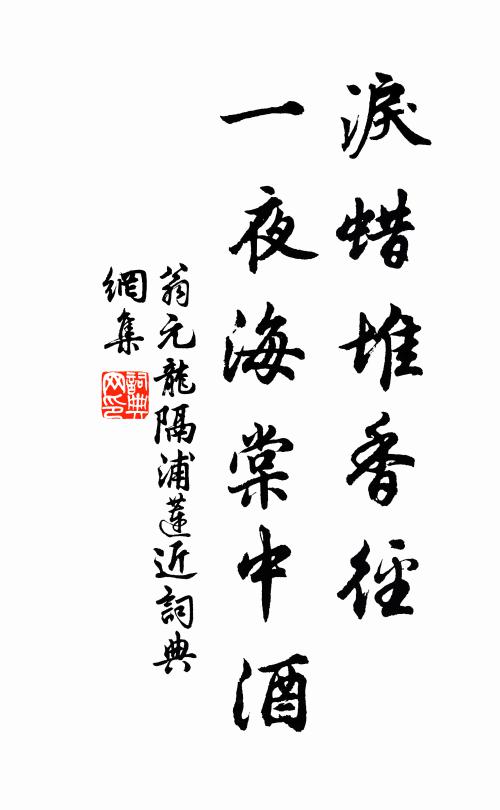 淚蜡堆香徑
一夜海棠中酒
翁元龍隔浦蓮近詞典
網集
詞典网印